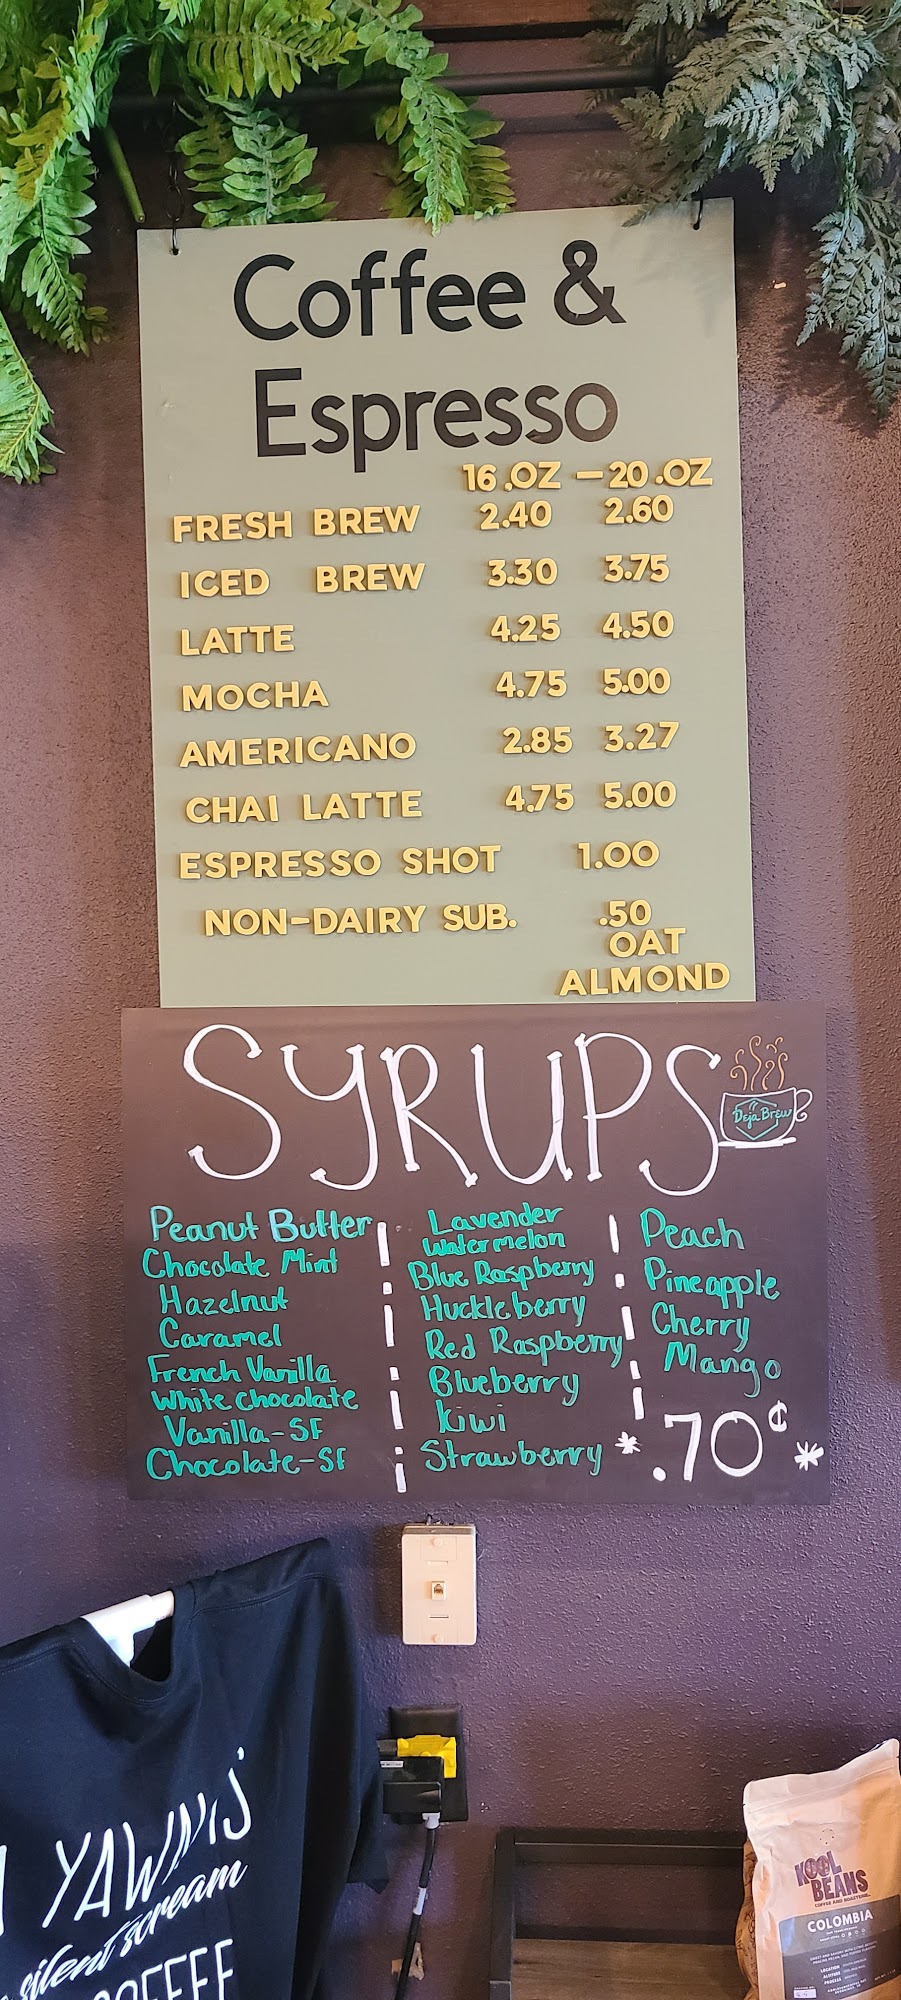 Coffee &
Espresso
16.OZ - 20.OZ
FRESH BREW 2.40 2.60
ICED BREW 3.30 3.75
LATTE 4.25 4.50
MOCHA 4.75 5.00
AMERICANO 2.85 3.27
CHAI LATTE 4.75 5.00
ESPRESSO SHOT 1.00
NON-DAIRY SUB. .50
OAT
ALMOND
SYRUPS
Deja Brew
Peanut Butter
Chocolate Mint
Hazelnut
Caramel
French Vanilla
White Chocolate
Vanilla-SF
Chocolate-SF
Lavender
Watermelon
Blue Raspberry
Huckleberry
Red Raspberry
Blueberry
Kiwi
Strawberry
Peach
Pineapple
Cherry
Mango
* .70¢ *
YAWN IS
silent scream
COFFEE
KOOL
BEANS
COFFEE AND ROASTERS
COLOMBIA
LOCATION
ALTITUDE
PROCESS